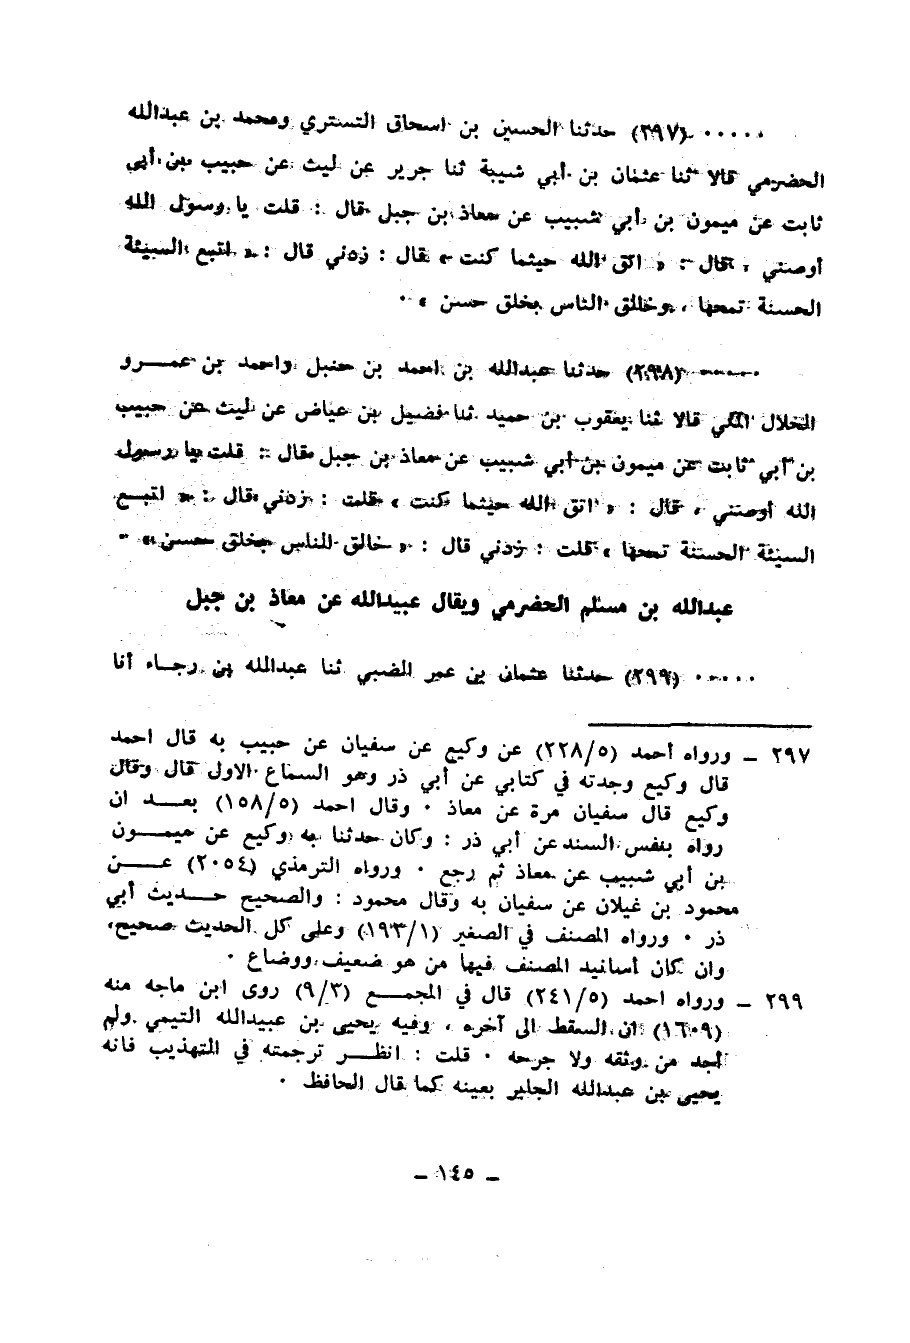 ..... (٢٩٧) حدثنا الحسين بن اسحاق التستري ومحمد بن عبدالله
الحضرمي قالا ثنا عثمان بن أبي شيبة ثنا جرير عن ليث عن حبيب بن أبي
ثابت عن ميمون بن أبي شبيب عن معاذ بن جبل قال : قلت يا رسول الله
أوصني ، قال : « اتق الله حيثما كنت » قال : زدني قال : « اتبع السيئة
الحسنة تمحها ، وخالق الناس بخلق حسن » .
..... (٢٩٨) حدثنا عبدالله بن احمد بن حنبل واحمد بن عمرو
الخلال المكي قالا ثنا يعقوب بن حميد ثنا فضيل بن عياض عن ليث عن حبيب
بن أبي ثابت عن ميمون بن أبي شبيب عن معاذ بن جبل قال : قلت يا رسول
الله أوصني ، قال : « اتق الله حيثما كنت » قلت : زدني قال : « اتبع
السيئة الحسنة تمحها » قلت : زدني قال : « خالق الناس بخلق حسن » .
عبدالله بن مسلم الحضرمي ويقال عبيدالله عن معاذ بن جبل
..... (٢٩٩) حدثنا عثمان بن عمر الضبي ثنا عبدالله بن رجاء أنا
٢٩٧ ـ ورواه أحمد (٢٢٨/٥) عن وكيع عن سفيان عن حبيب به قال احمد
قال وكيع وجدته في كتابي عن أبي ذر وهو السماع الاول قال وقال
وكيع قال سفيان مرة عن معاذ . وقال احمد (١٥٨/٥) بعد ان
رواه بنفس السند عن أبي ذر : وكان حدثنا به وكيع عن ميمون
بن أبي شبيب عن معاذ ثم رجع . ورواه الترمذي (٢٠٥٤) عن
محمود بن غيلان عن سفيان به وقال محمود : والصحيح حديث أبي
ذر . ورواه المصنف في الصغير (١٩٣/١) وعلى كل الحديث صحيح،
وان كان أسانيد المصنف فيها من هو ضعيف ووضاع .
٢٩٩ ـ ورواه احمد (٢٤١/٥) قال في المجمع (٩/٣) روى ابن ماجه منه
(١٦٠٩) ان السقط الى آخره ، وفيه يحيى بن عبيدالله التيمي ولم
أجد من وثقه ولا جرحه . قلت : انظر ترجمته في التهذيب فانه
يحيى بن عبدالله الجابر بعينه كما قال الحافظ .
ـ ١٤٥ ـ